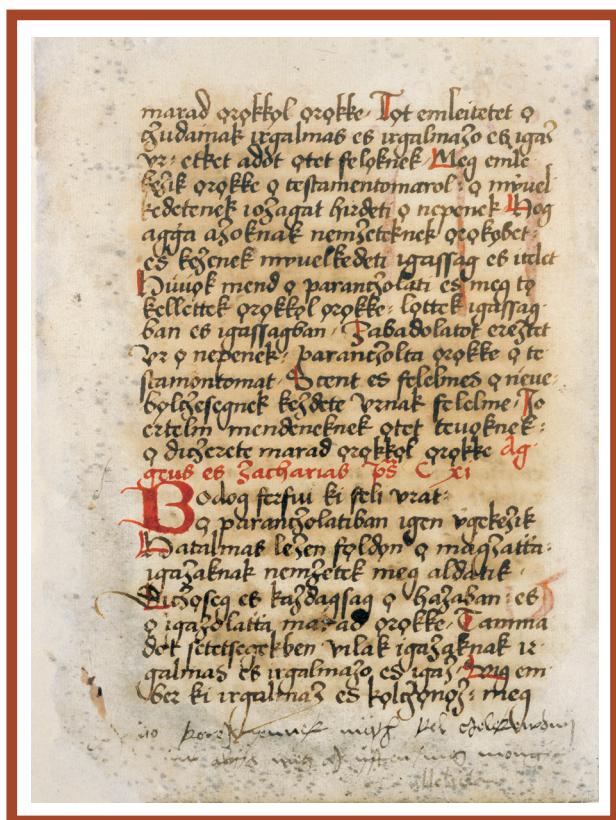 marad ọrọkkọl ọrọkke· Tọt emleitetet ọ
čudainak irgalmas es irgalmaʒo es igaʒ
vr· etket adot ọtet felọknek· Meg emle
keʒik ọrọkke ọ testamentomarol: ọ mẏuel
kedetenek ioʒagat hirdeti ọ nepenek Hog
aģģa aʒoknak nemʒeteknek ọrọkọbet:
es keʒenek mẏuelkedeti igassag es itelet
Hiuọk mend ọ parančolati es meg tọ
kellettek ọrọkkọl ọrọkke: lọttek igassag
ban es igassagban· Zabadolatot ereʒtet
vr ọ nepenek: parančolta ọrọkke ọ te
stamontomat· Scent es felelmes ọ neue·
bọlčesegnek keʒdete vrnak felelme· Jo
ertelm mendeneknek ọtet teuọknek:
ọ dičerete marad ọrọkkọl ọrọkke Ag·
geus es Zacharias ps C xi
Bodog ferfiu ki feli vrat:
ọ parančolatiban igen vgekeʒik
Hatalmas leʒen fọldọn ọ magʒatta:
igaʒaknak nemʒetek meg aldatik·
Dičọseg es kaʒdagsag ọ haʒaban es
ọ igaʒolatta marad ọrọkke· Tamma
dot setetsegekben vilak igaʒaknak ir
galmas es irgalmaʒo es igaʒ· Vig em
ber ki irgalmaʒ es kọlčọnọʒ: meg